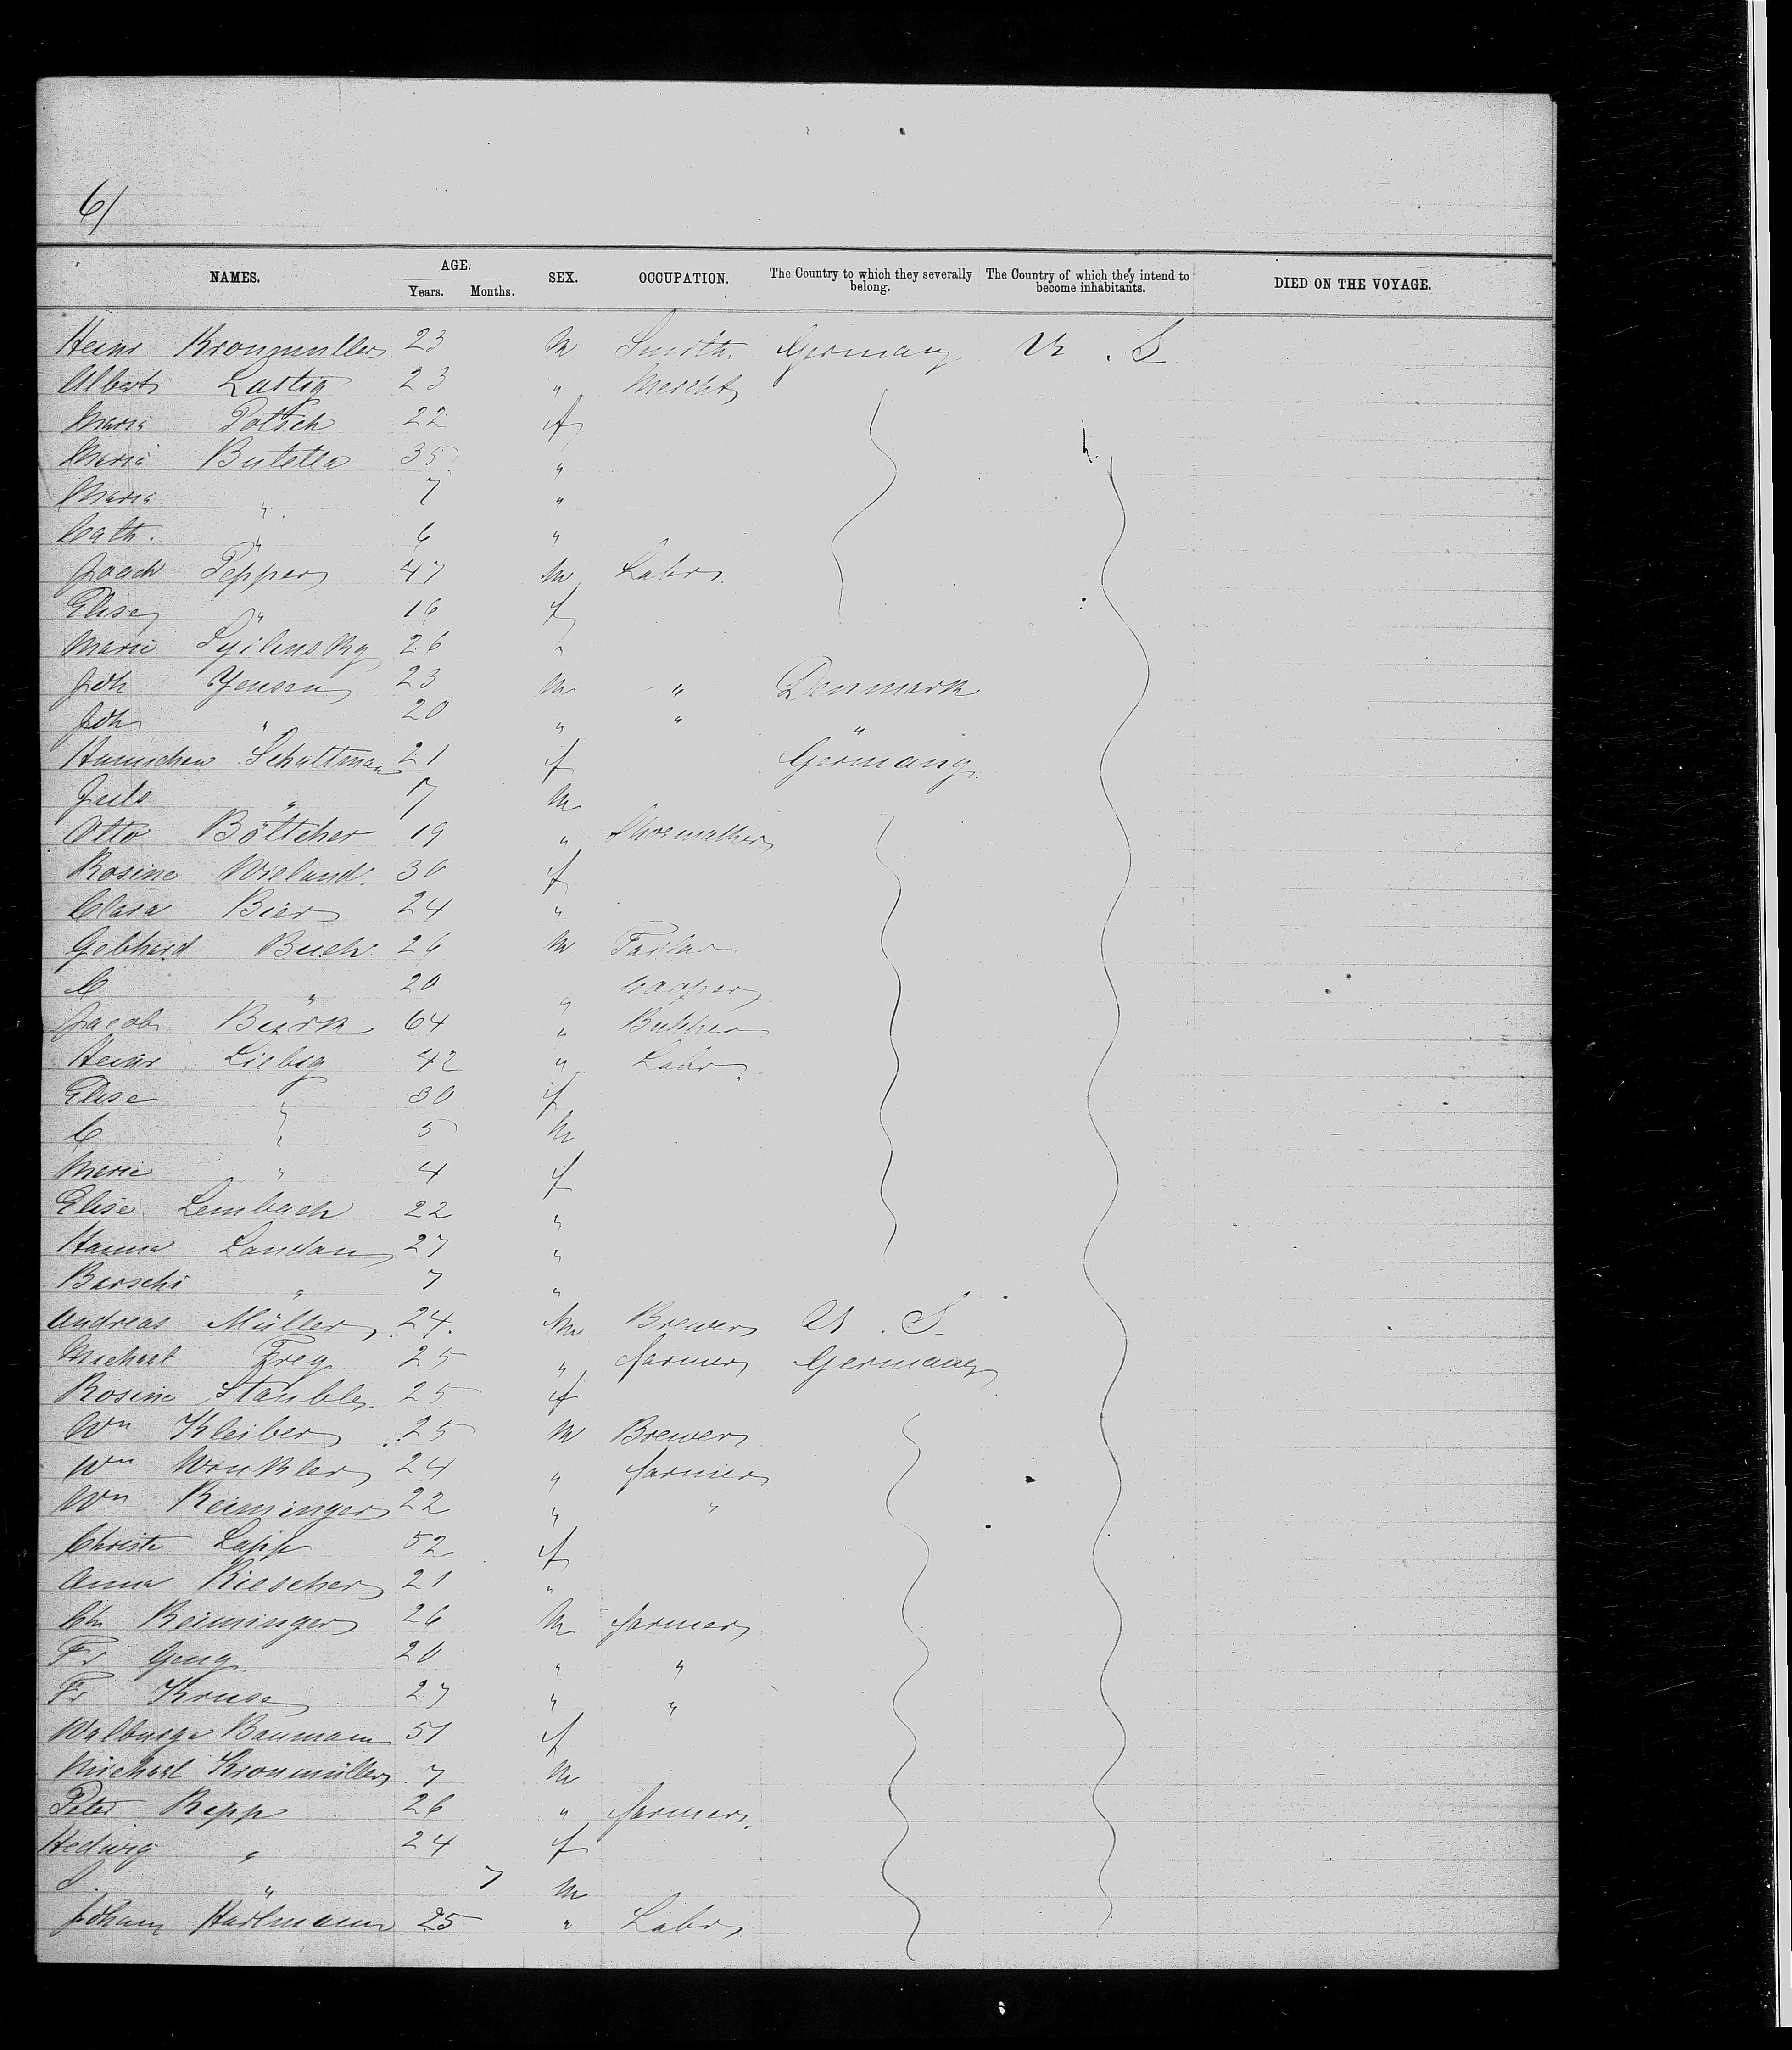 6/
NAMES. AGE. Years. Months. SEX. OCCUPATION. The Country to which they severally belong. The Country of which they intend to become inhabitants. DIED ON THE VOYAGE.
Heinr Kronmuller 23 M Smith Germany U. S
Albert Lastig 23 " Mercht
Maria Potsch 22 f
Maria Butella 35 "
Maria " 7 "
Cath. " 6 "
Joach Pepper 47 M Labr
Elise " 16 f
Marie 26 "
Joh Yensen 23 M " Denmark
Joh " 20 " " "
Hannchen Schultman 21 f Germany
Juls " 17 M
Otto Böttcher 19 " Shoemaker
Rosine Wieland 30 f
Clara Bier 24 "
Gebhard Buck 26 M Tailor
C " 20 " Cooper
Jacob Burk 64 " Butcher
Heinr Liebig 42 " Labr
Elise " 30 f
C " 5 M
Marie " 4 f
Elise Lembach 22 "
Hanna Landau 27 "
Barschi " 7 "
Andreas Müller 24 M Brewer U. S
Michael Frey 25 " farmer Germany
Rosine Staubler 25 f
Wm Kleiber 25 M Brewer
Wm Winkler 24 " farmer
Wm Reiminger 22 " "
Christe Lapp 52 f
Anna Riescher 21 "
Ch Reiminger 26 M farmer
Fr Geng 20 " "
Fr Kruse 27 " "
Walburga Baumann 51 f
Michael Kronmüller 7 M
Peter Rapp 26 " farmer
Hedwig " 24 f
" 7 M
Johann Hartmann 25 " Labr